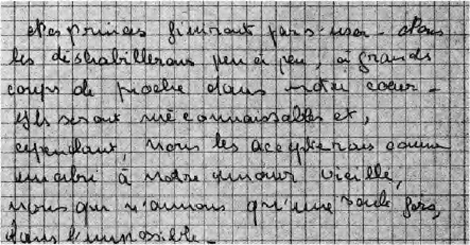 Nos princes finiront par s'user. Nous
les déshabillerons peu à peu, à grands
coups de pioche dans notre coeur.
Ils seront méconnaissables et,
cependant, nous les accepterons comme
un abri à notre amour vieille,
nous qui n'aimons qu'une seule fois,
dans l'impossible.